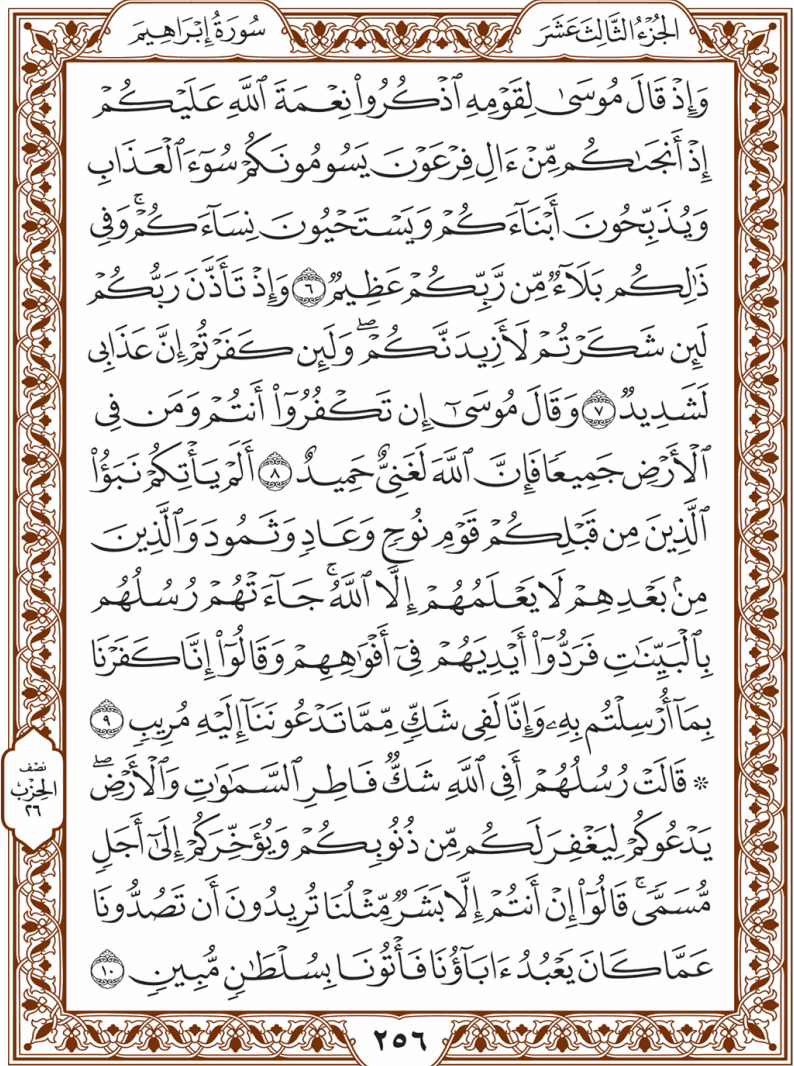 الجُزْءُ الثَّالِثَ عَشَرَ
سُورَةُ إِبْرَاهِيمَ
وَإِذْ قَالَ مُوسَىٰ لِقَوْمِهِ ٱذْكُرُوا۟ نِعْمَةَ ٱللَّهِ عَلَيْكُمْ
إِذْ أَنجَىٰكُم مِّنْ ءَالِ فِرْعَوْنَ يَسُومُونَكُمْ سُوٓءَ ٱلْعَذَابِ
وَيُذَبِّحُونَ أَبْنَآءَكُمْ وَيَسْتَحْيُونَ نِسَآءَكُمْ ۚ وَفِى
ذَٰلِكُم بَلَآءٌ مِّن رَّبِّكُمْ عَظِيمٌ ٦ وَإِذْ تَأَذَّنَ رَبُّكُمْ
لَئِن شَكَرْتُمْ لَأَزِيدَنَّكُمْ ۖ وَلَئِن كَفَرْتُمْ إِنَّ عَذَابِى
لَشَدِيدٌ ٧ وَقَالَ مُوسَىٰٓ إِن تَكْفُرُوٓا۟ أَنتُمْ وَمَن فِى
ٱلْأَرْضِ جَمِيعًا فَإِنَّ ٱللَّهَ لَغَنِىٌّ حَمِيدٌ ٨ أَلَمْ يَأْتِكُمْ نَبَؤُا۟
ٱلَّذِينَ مِن قَبْلِكُمْ قَوْمِ نُوحٍ وَعَادٍ وَثَمُودَ وَٱلَّذِينَ
مِنۢ بَعْدِهِمْ لَا يَعْلَمُهُمْ إِلَّا ٱللَّهُ ۚ جَآءَتْهُمْ رُسُلُهُم
بِٱلْبَيِّنَٰتِ فَرَدُّوٓا۟ أَيْدِيَهُمْ فِىٓ أَفْوَٰهِهِمْ وَقَالُوٓا۟ إِنَّا كَفَرْنَا
بِمَآ أُرْسِلْتُم بِهِۦ وَإِنَّا لَفِى شَكٍّ مِّمَّا تَدْعُونَنَآ إِلَيْهِ مُرِيبٍ ٩
۞ قَالَتْ رُسُلُهُمْ أَفِى ٱللَّهِ شَكٌّ فَاطِرِ ٱلسَّمَٰوَٰتِ وَٱلْأَرْضِ ۖ
يَدْعُوكُمْ لِيَغْفِرَ لَكُم مِّن ذُنُوبِكُمْ وَيُؤَخِّرَكُمْ إِلَىٰٓ أَجَلٍ
مُّسَمًّى ۚ قَالُوٓا۟ إِنْ أَنتُمْ إِلَّا بَشَرٌ مِّثْلُنَا تُرِيدُونَ أَن تَصُدُّونَا
عَمَّا كَانَ يَعْبُدُ ءَابَآؤُنَا فَأْتُونَا بِسُلْطَٰنٍ مُّبِينٍ ١٠
نصْف
الحِزْب
٢٦
٢٥٦